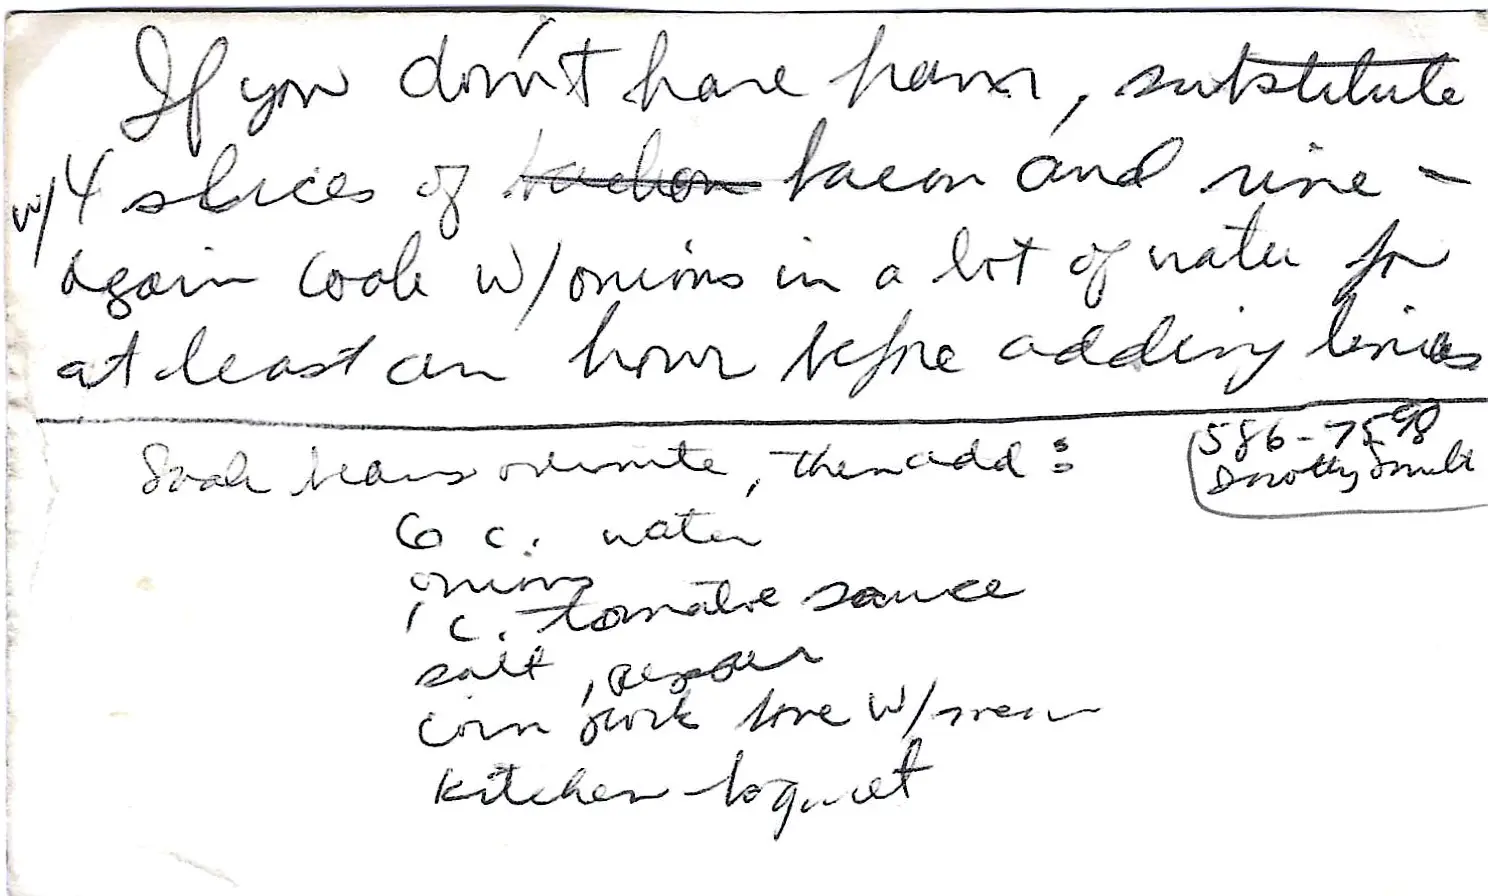 If you don't have ham, substitute
w/4 slices of bacon and rine -
again cook w/onions in a lot of water for
at least an hour before adding
586-7598
Dorothy
Soak beans overnite, then add:
6 c. water
onions
1 c. tomatoe sauce
salt, pepper
corn pork bone w/mea
kitchen boquet